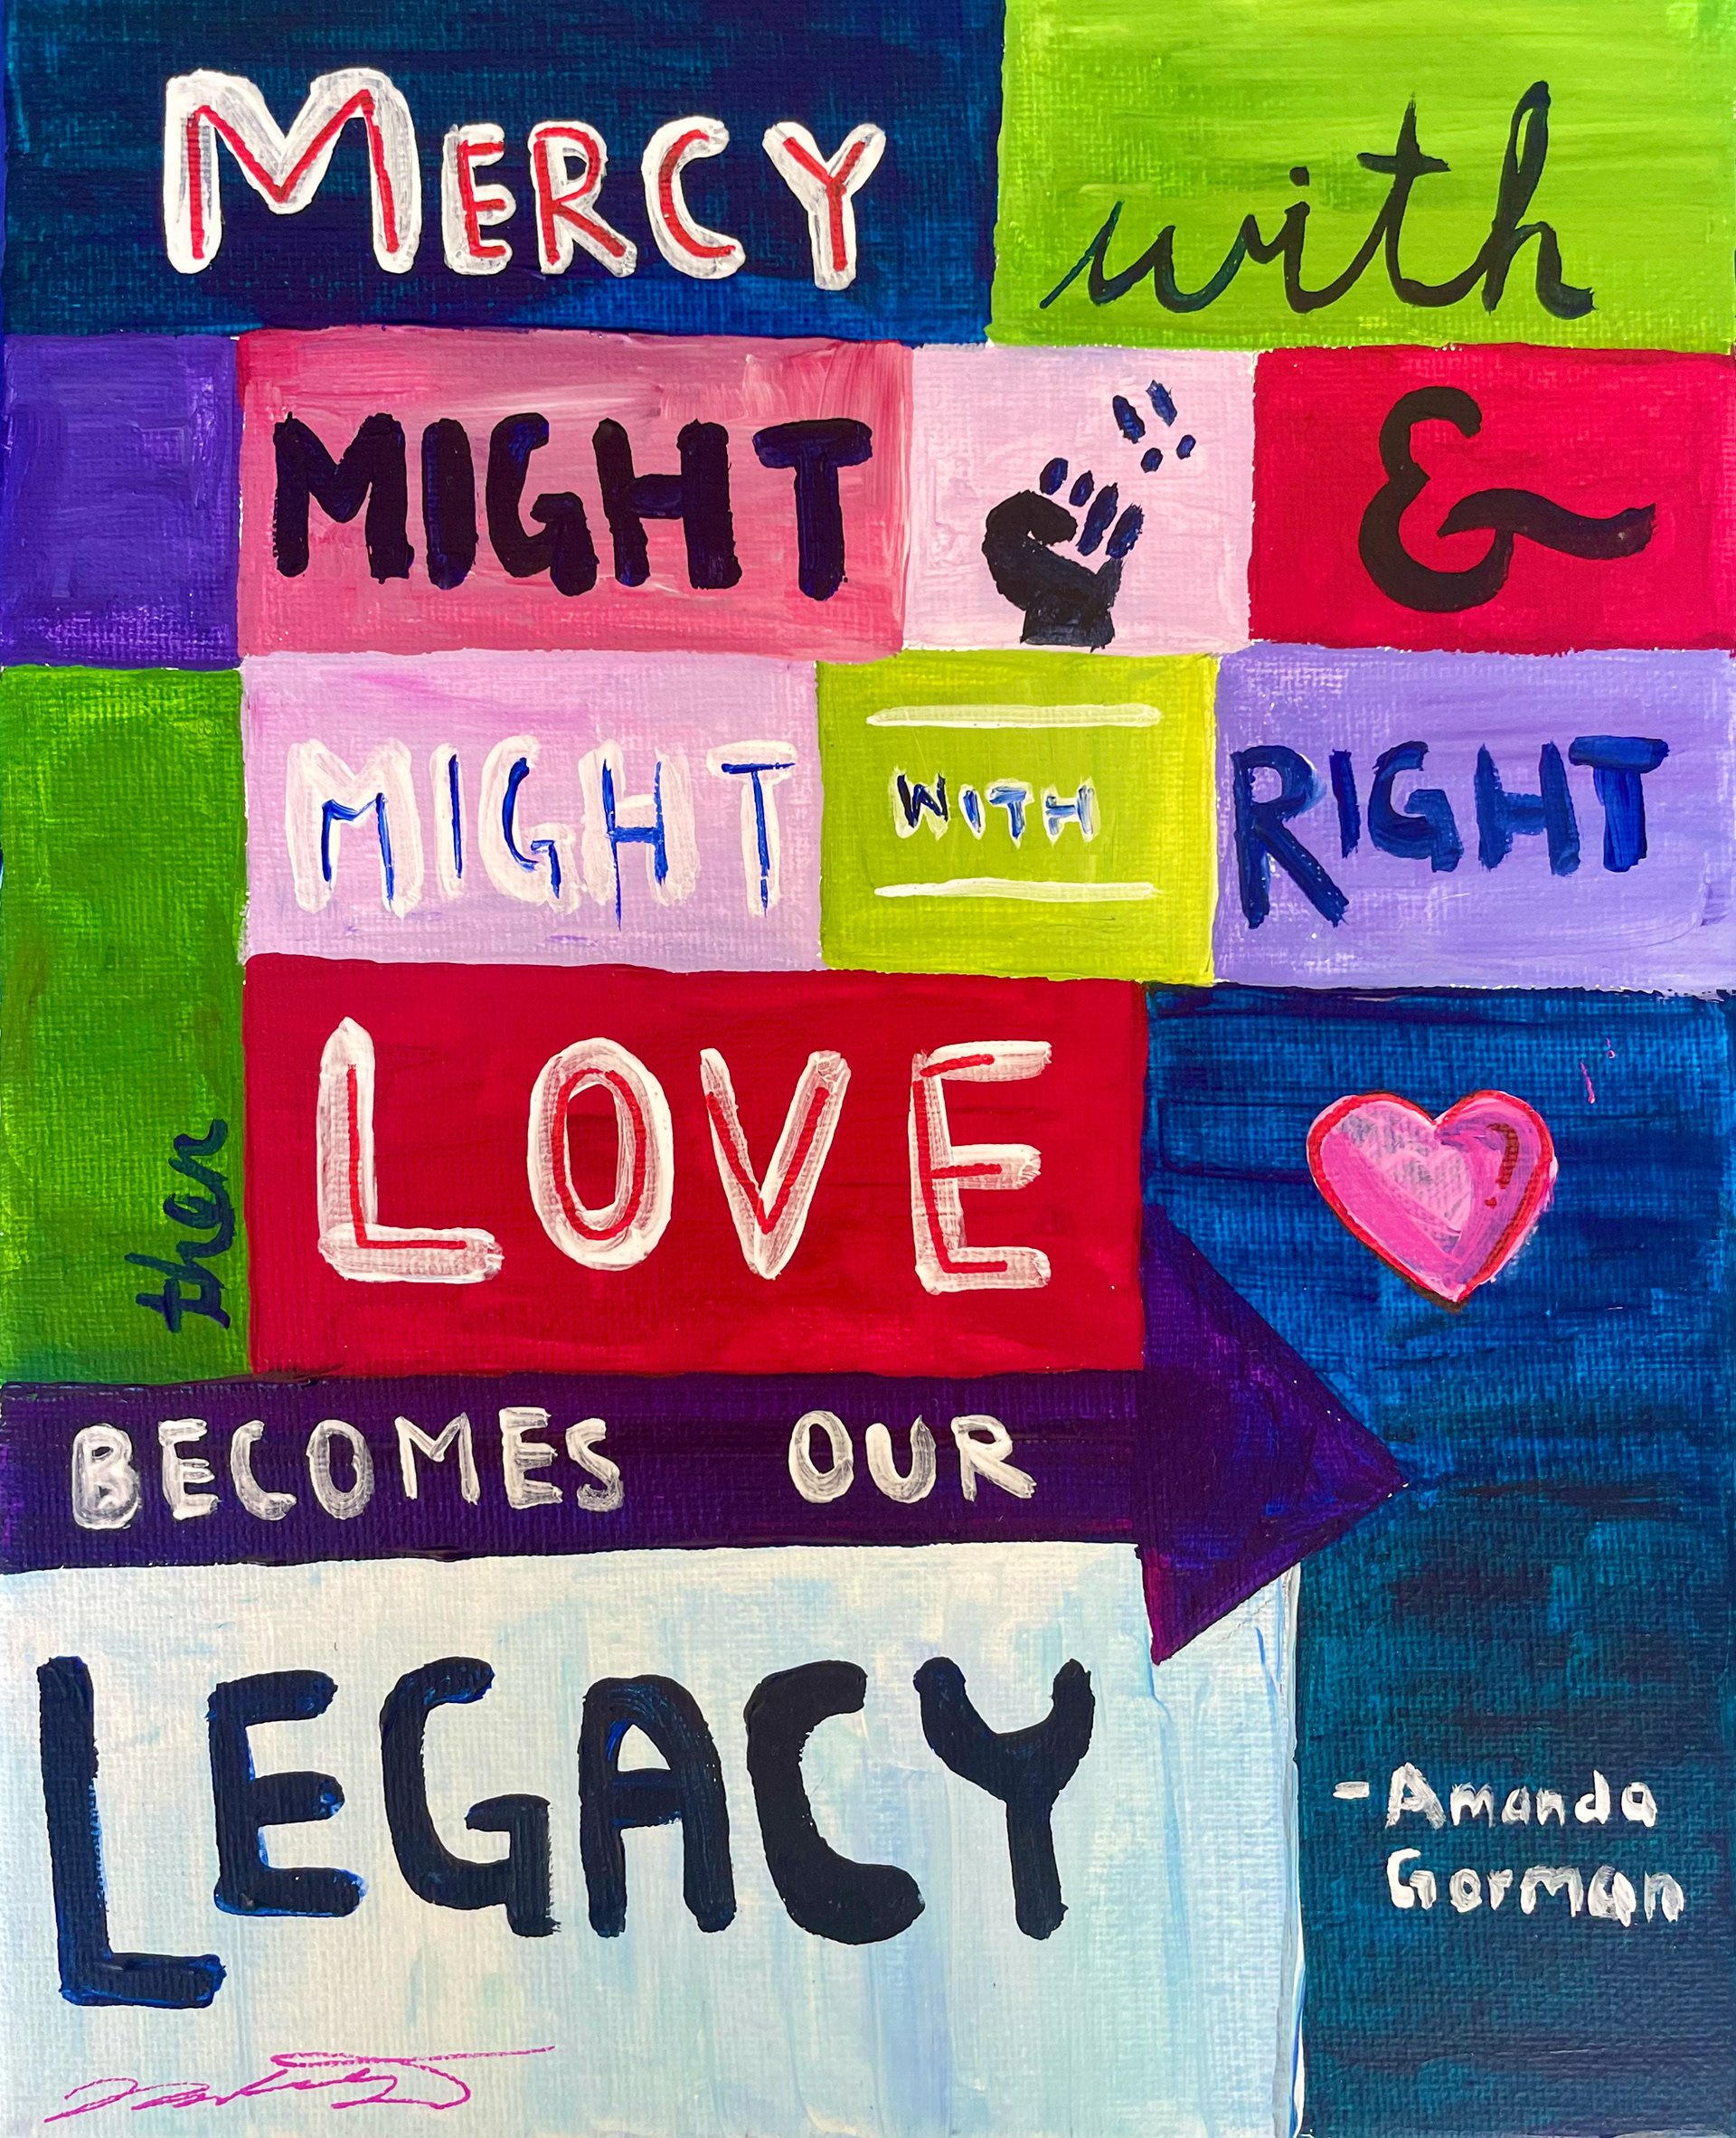 MERCY with
MIGHT &
MIGHT WITH RIGHT
then LOVE
BECOMES OUR
LEGACY
-Amanda
Gorman